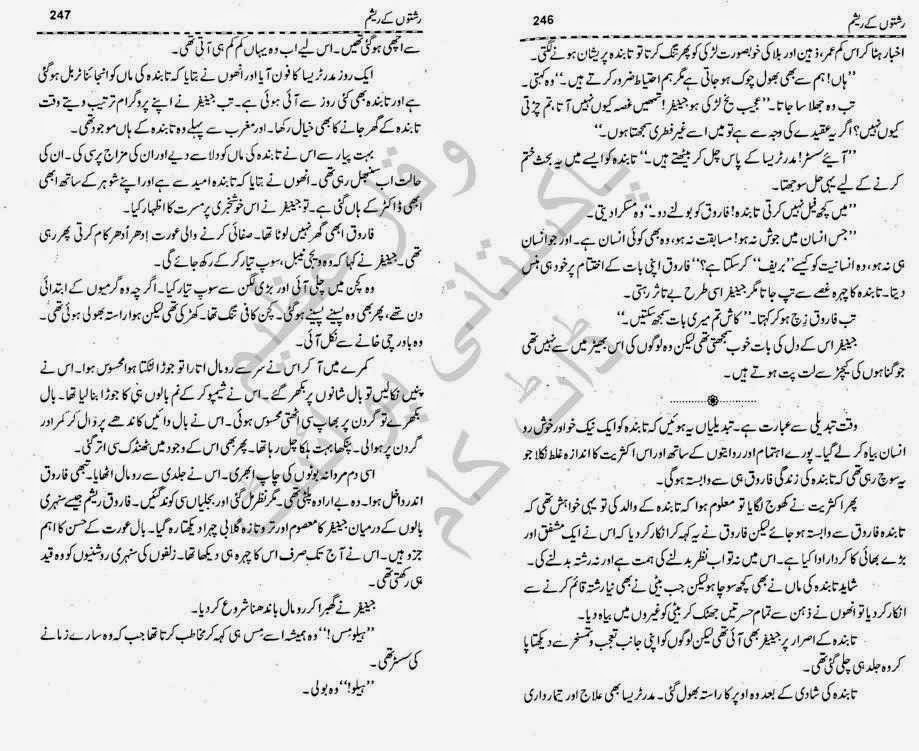 رشتوں کے ریشم 246
اخبار ہٹا کر اس کم عمر، ذہین اور بلا کی خوبصورت لڑکی کو پھر تنگ کرتا تو تابندہ پریشان ہونے لگتی۔
’’ہاں! ہم سے بھی بھول چوک ہو جاتی ہے مگر ہم احتیاط ضرور کرتے ہیں۔‘‘ وہ کہتی۔
تب وہ جھلا سا جاتا۔ ’’عجیب یخ لڑکی ہو جینیفر! تمھیں غصہ کیوں نہیں آتا، تم چڑتی
کیوں نہیں؟ اگر یہ عقیدے کی وجہ سے ہے تو میں اسے غیر فطری سمجھتا ہوں۔‘‘
’’آیئے سسٹر! مدر ٹریسا کے پاس چل کر بیٹھتے ہیں۔‘‘ تابندہ کو ایسے میں یہ بحث ختم
کرنے کے لیے یہی حل سوجھتا۔
’’میں کچھ فیل نہیں کرتی تابندہ! فاروق کو بولنے دو۔‘‘ وہ مسکرا دیتی۔
’’جس انسان میں جوش نہ ہو! مسابقت نہ ہو، وہ بھی کوئی انسان ہے۔ اور جو انسان
ہی نہ ہو، وہ انسانیت کو کیسے ’’بریف‘‘ کر سکتا ہے؟‘‘ فاروق اپنی بات کے اختتام پر خود ہی ہنس
دیتا۔ تابندہ کا چہرہ غصے سے تپ جاتا مگر جینیفر اسی طرح بے تاثر رہتی۔
تب فاروق زچ ہو کر کہتا۔ ’’کاش تم میری بات سمجھ سکتیں۔‘‘
جینیفر اس کے دل کی بات خوب سمجھتی تھی لیکن وہ لوگوں کی اس بھیڑ میں سے نہیں تھی
جو گناہوں کی کیچڑ سے لت پت ہوتے ہیں۔
وقت تبدیلی سے عبارت ہے۔ تبدیلیاں یہ ہوئیں کہ تابندہ کو ایک نیک خو اور خوش رو
انسان بیاہ کر لے گیا۔ پورے اہتمام اور روایتوں کے ساتھ اور اس اکثریت کا اندازہ غلط نکلا جو
یہ سوچ رہی تھی کہ تابندہ کی زندگی فاروق ہی سے وابستہ ہو گی۔
پھر اکثریت نے کھوج لگایا تو معلوم ہوا کہ تابندہ کے والد کی تو یہی خواہش تھی کہ
تابندہ فاروق سے وابستہ ہو جائے لیکن فاروق نے یہ کہہ کر انکار کر دیا کہ اس نے ایک مشفق اور
بڑے بھائی کا کردار ادا کیا ہے۔ اس میں نہ تو اب نظر بدلنے کی ہمت ہے اور نہ رشتہ بدلنے کی۔
شاید تابندہ کی ماں نے بھی کچھ سوچا ہو لیکن جب بیٹی نے بھی نیا رشتہ قائم کرنے سے
انکار کر دیا تو انھوں نے ذہن سے تمام حسرتیں جھٹک کر بیٹی کو غیروں میں بیاہ دیا۔
تابندہ کے اصرار پر جینیفر بھی آئی تھی لیکن لوگوں کو اپنی جانب تعجب و تمسخر سے دیکھتا پا
کر وہ جلد ہی چلی گئی تھی۔
تابندہ کی شادی کے بعد وہ اوپر کا راستہ بھول گئی۔ مدر ٹریسا بھی علاج اور تیمارداری
رشتوں کے ریشم 247
سے اچھی ہو گئی تھیں۔ اس لیے اب وہ یہاں کم کم ہی آتی تھی۔
ایک روز مدر ٹریسا کا فون آیا اور انھوں نے بتایا کہ تابندہ کی ماں کو انجائنا ٹربل ہو گئی
ہے اور تابندہ بھی کئی روز سے آئی ہوئی ہے۔ تب جینیفر نے اپنے پروگرام ترتیب دیتے وقت
تابندہ کے گھر جانے کا بھی خیال رکھا۔ اور مغرب سے پہلے وہ تابندہ کے ہاں موجود تھی۔
بہت پیار سے اس نے تابندہ کی ماں کو دلاسے دیے اور ان کی مزاج پرسی کی۔ ان کی
حالت اب سنبھل رہی تھی۔ انھوں نے بتایا کہ تابندہ امید سے ہے اور اپنے شوہر کے ساتھ ابھی
ابھی ڈاکٹر کے ہاں گئی ہے۔ تو جینیفر نے اس خوشخبری پر مسرت کا اظہار کیا۔
فاروق ابھی گھر نہیں لوٹا تھا۔ صفائی کرنے والی عورت اِدھر اُدھر کام کرتی پھر رہی
تھی۔ جینیفر نے کہا کہ وہ ویجی ٹیبل، سوپ تیار کر کے رکھ جائے گی۔
وہ کچن میں چلی آئی اور بڑی لگن سے سوپ تیار کیا۔ اگرچہ وہ گرمیوں کے ابتدائی
دن تھے، پھر بھی وہ پسینے پسینے ہو گئی۔ کچن کافی تنگ تھا۔ کھڑکی تھی لیکن ہوا راستہ بھولی ہوئی تھی۔
وہ باورچی خانے سے نکل آئی۔
کمرے میں آ کر اس نے سر سے رومال اتارا تو جوڑا لٹکتا ہوا محسوس ہوا۔ اس نے
پنیں نکالیں تو بال شانوں پر بکھر گئے۔ اس نے شیمپو کر کے نم بالوں ہی کا جوڑا بنا لیا تھا۔ بال
بکھرے تو گردن پر بھاپ سی اٹھتی محسوس ہوئی۔ اس نے بال دائیں کاندھے پر ڈال کر کمر اور
گردن پر ہوا لی۔ پنکھا بہت ہلکا چل رہا تھا۔ پھر بھی اس کے وجود میں ٹھنڈک سی اتر گئی۔
اسی دم مردانہ بوٹوں کی چاپ ابھری۔ اس نے جلدی سے رومال اٹھایا۔ تبھی فاروق
اندر داخل ہوا۔ وہ بے ارادہ پلٹی تھی۔ مگر نظر مل گئی اور بجلیاں سی کوند گئیں۔ فاروق ریشم جیسے سنہری
بالوں کے درمیان جینیفر کا معصوم اور تر و تازہ گلابی چہرا دیکھتا رہ گیا۔ بال عورت کے حسن کا اہم
جزو ہیں۔ اس نے آج تک صرف اس کا چہرہ ہی دیکھا تھا۔ زلفوں کی سنہری روشنیوں کو وہ قید
ہی رکھتی تھی۔
جینیفر نے گھبرا کر رومال باندھنا شروع کر دیا۔
’’ہیلو مس!‘‘ وہ ہمیشہ اسے مس ہی کہہ کر مخاطب کرتا تھا جب کہ وہ سارے زمانے
کی سسٹر تھی۔
’’ہیلو!‘‘ وہ بولی۔